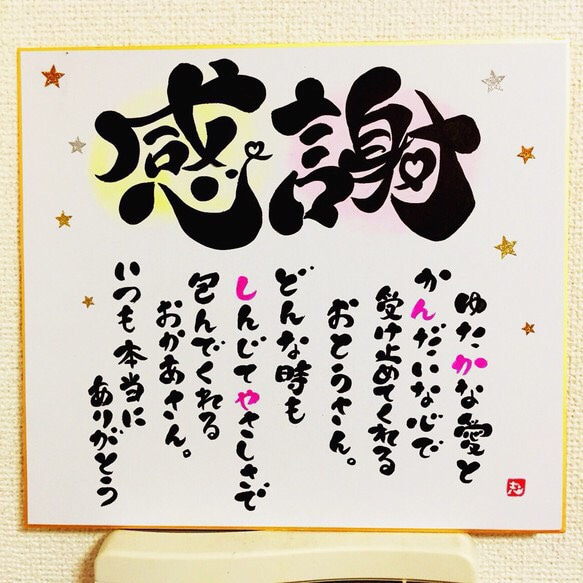 感謝
ゆたかな愛と
かんだいな心で
受け止めてくれる
おとうさん。
どんな時も
しんじてやさしさで
包んでくれる
おかあさん。
いつも本当に
ありがとう